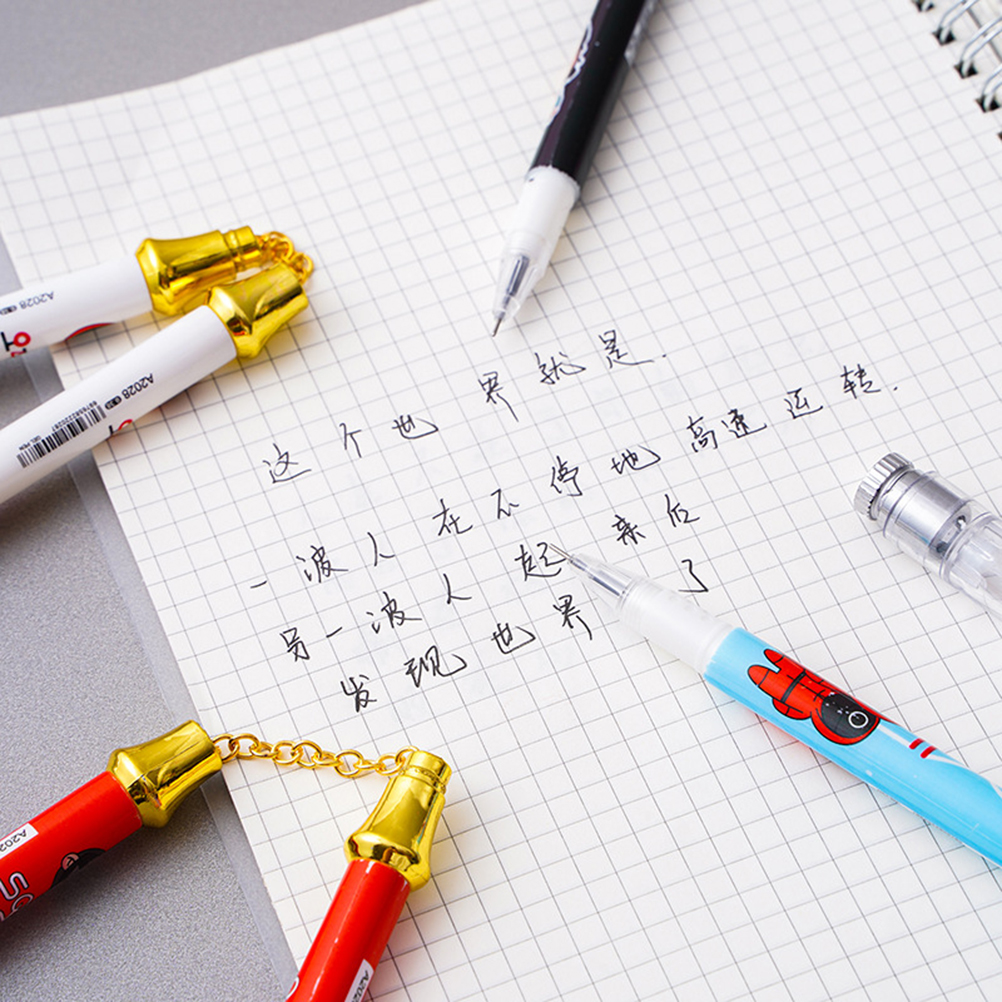 这个世界就是.
一波人在不停地高速运转.
另一波人起来后
发现世界 了
A2028
A2028
6976582200287
GEL PEN
A202
A202